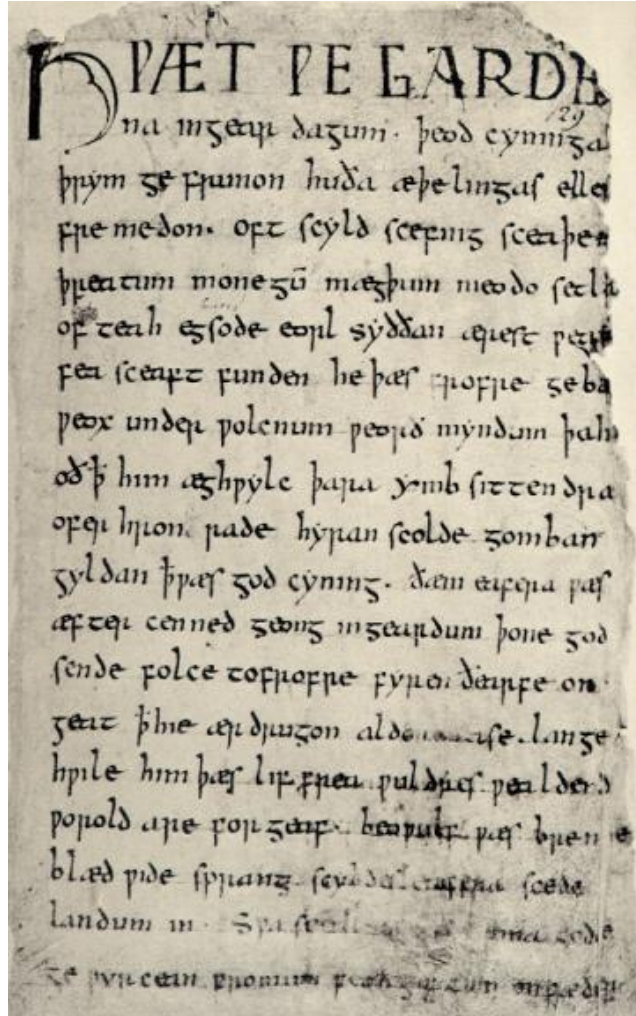 HǷÆT ǷE GARDE
29
na ingear dagum. þeod cyninga
þrym ge frunon huða æþelingas elle
fre medon. oft scyld scefing sceaþe
þreatum monegū mægþum meodo setla
of teah egsode eorl syððan ærest ƿear
fea sceaft funden he þæs frofre geba
ƿeox under ƿolcnum ƿeorð myndum þah
oð ꝥ him æghƿylc þara ymb sittendra
ofer hron rade hyran scolde gomban
gyldan ꝥ ƿæs god cyning. ðæm eafera ƿæs
æfter cenned geong ingeardum þone god
sende folce tofrofre fyren ðearfe on
geat ꝥ hie ær drugon lange
hƿile him þæs lif frea ƿuldres ƿealdend
ƿorold are for geaf. beoƿulf ƿæs breme
blæd ƿide sprang scyldes eafera scede
landum in. Sƿa gode
ge ƿyrcean fromum feoh giftum